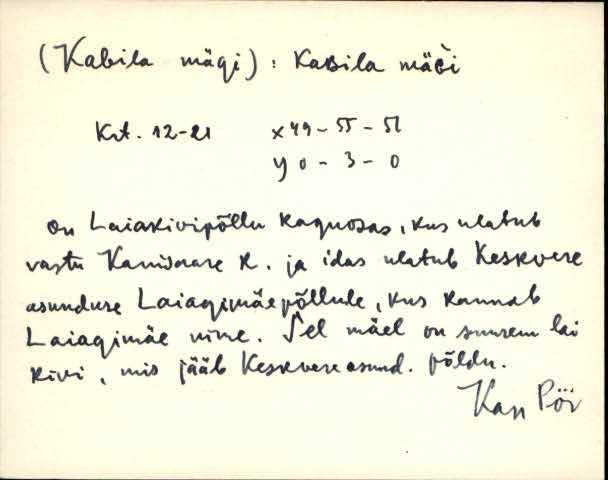 (Kabila mägi) : kaʙila mäɢ̆i
Krt. 12-21 x 49 - 55 - 51
y 0 - 3 - 0
on Laiakivipõllu kaguosas, kus ulatub
vastu k. ja idas ulatub Keskvere
asunduse Laiagimäepõllule, kus kannab
Laiagimäe nime. Sel mäel on suurem lai
kivi, mis jääb Keskvere asund. põldu.
Pöi